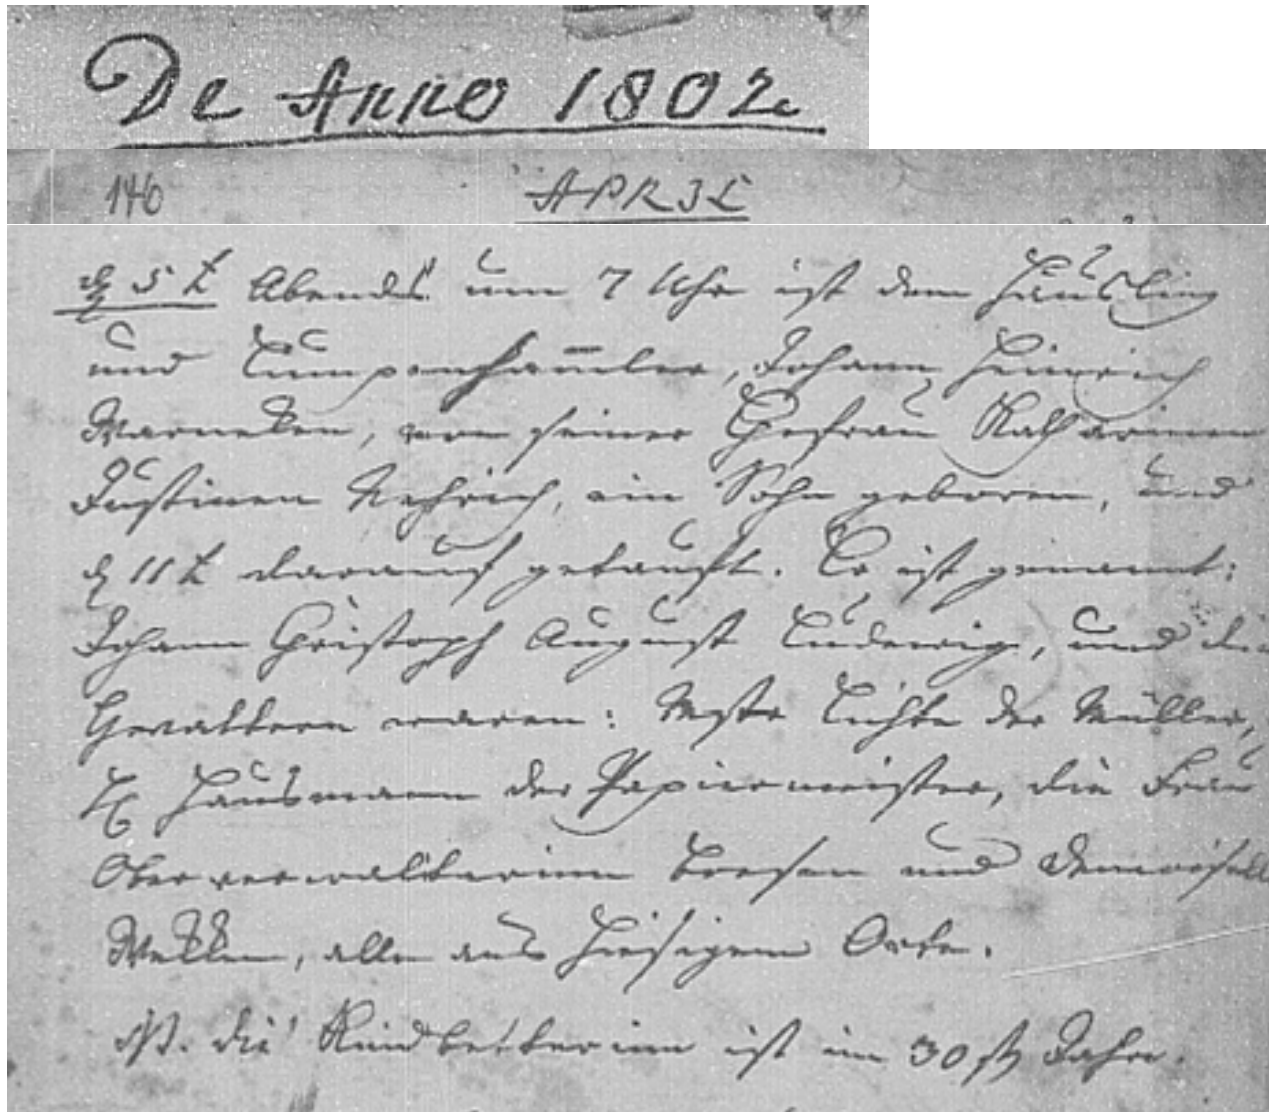 De Anno 1802
146
APRIL
d. 5t Abends um 7 Uhr ist dem Häusling
und Lumpensam̄ler, Johann Heinrich
Warneken, von seiner Ehefrau Katharinen
Justinen Nehrich, ein Sohn geboren, und
d. 11t darauf getauft. Er ist genannt:
Johann Christoph August Ludewig, und die
Gevattern waren: Mstr Lichte der Müller,
H. Hausmann der Papiermeister, die Frau
Oberverwalterinn Bresen und Demoisell
Wekken, alle aus hiesigem Orte.
NB. die Kindbetterinn ist im 30st Jahre.